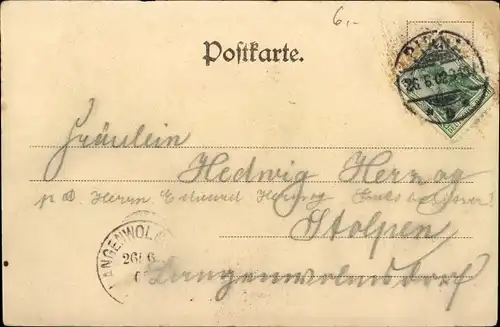 6.-
Postkarte.
PIRNA
26.6.02
Fräulein
Hedwig Herzog
Herrn Eduard Herzog
Stolpen
LANGENWOL
26 6
Langenwolmsdorf